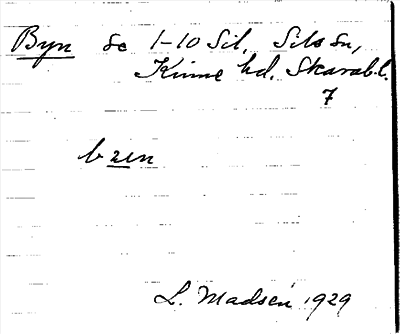 Byn so 1-10 Sil, Sils sn,
Kinne hd, Skarab.l.
7
b ɀen
L. Madsen 1929